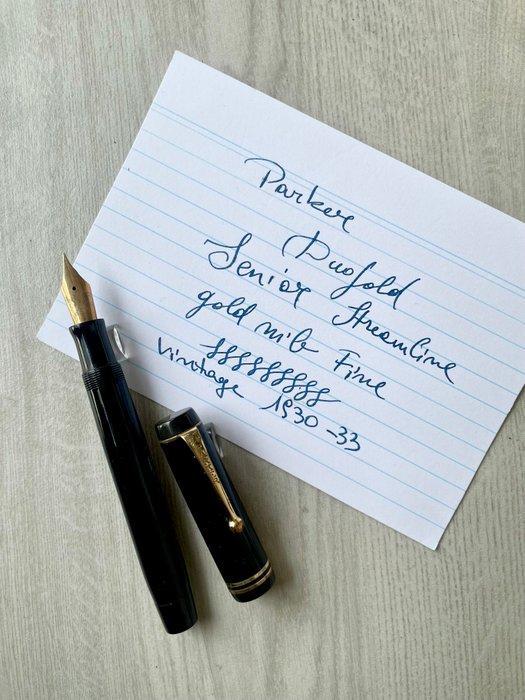 Parker
Duofold
Senior Streamline
gold nib Fine
Vintage 1930-33